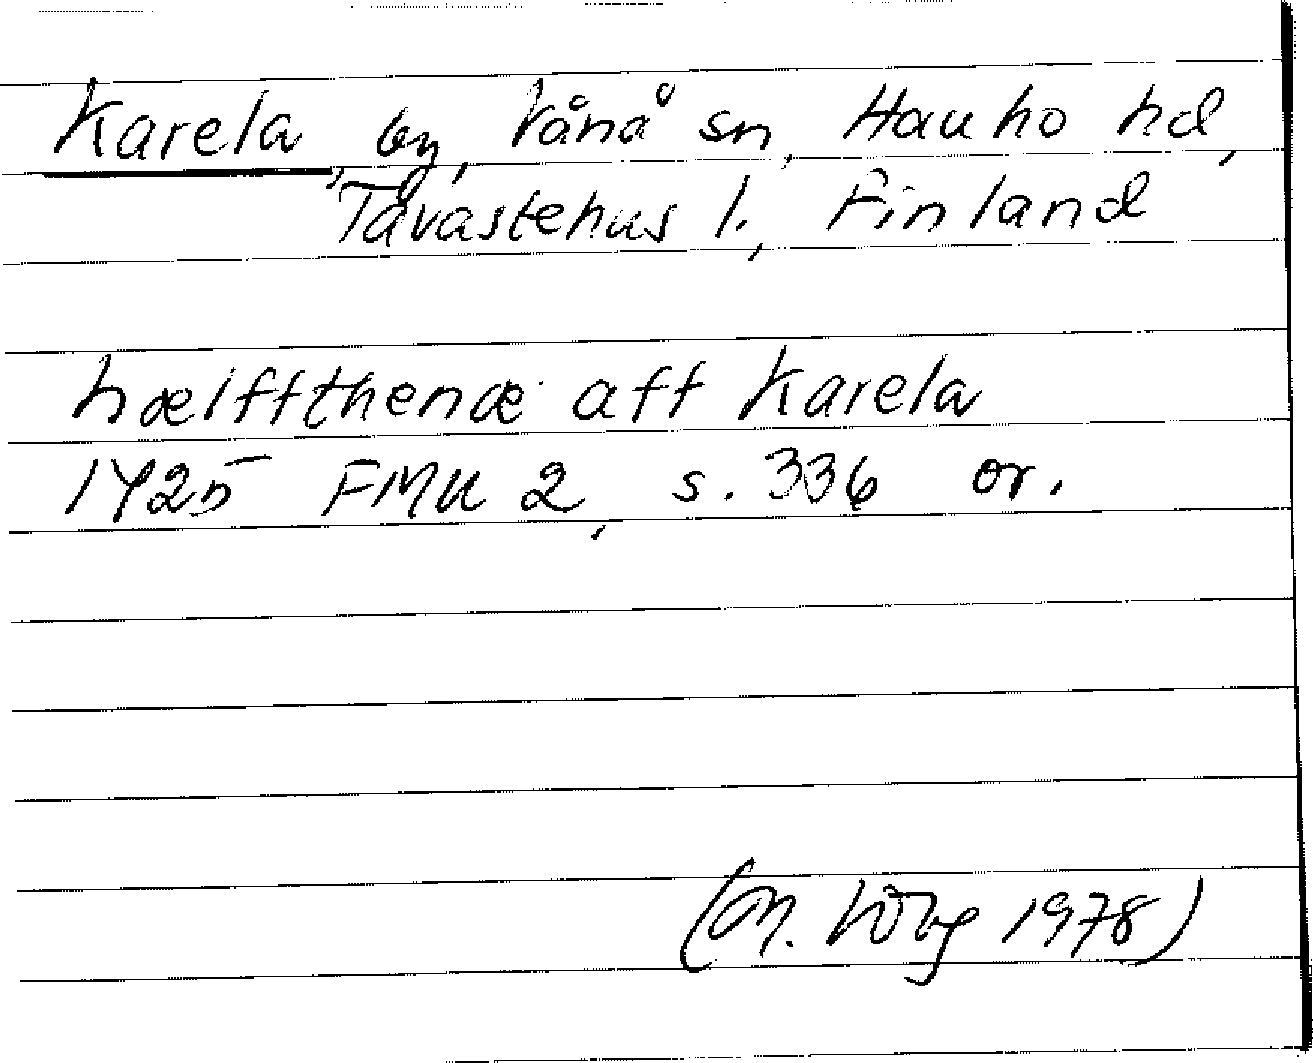 Karela by, Vånå sn, Hauho hd,
Tavastehus l., Finland
hælffthenæ aff Karela
1425 FMU 2, s. 336 or.
(M. 1978)